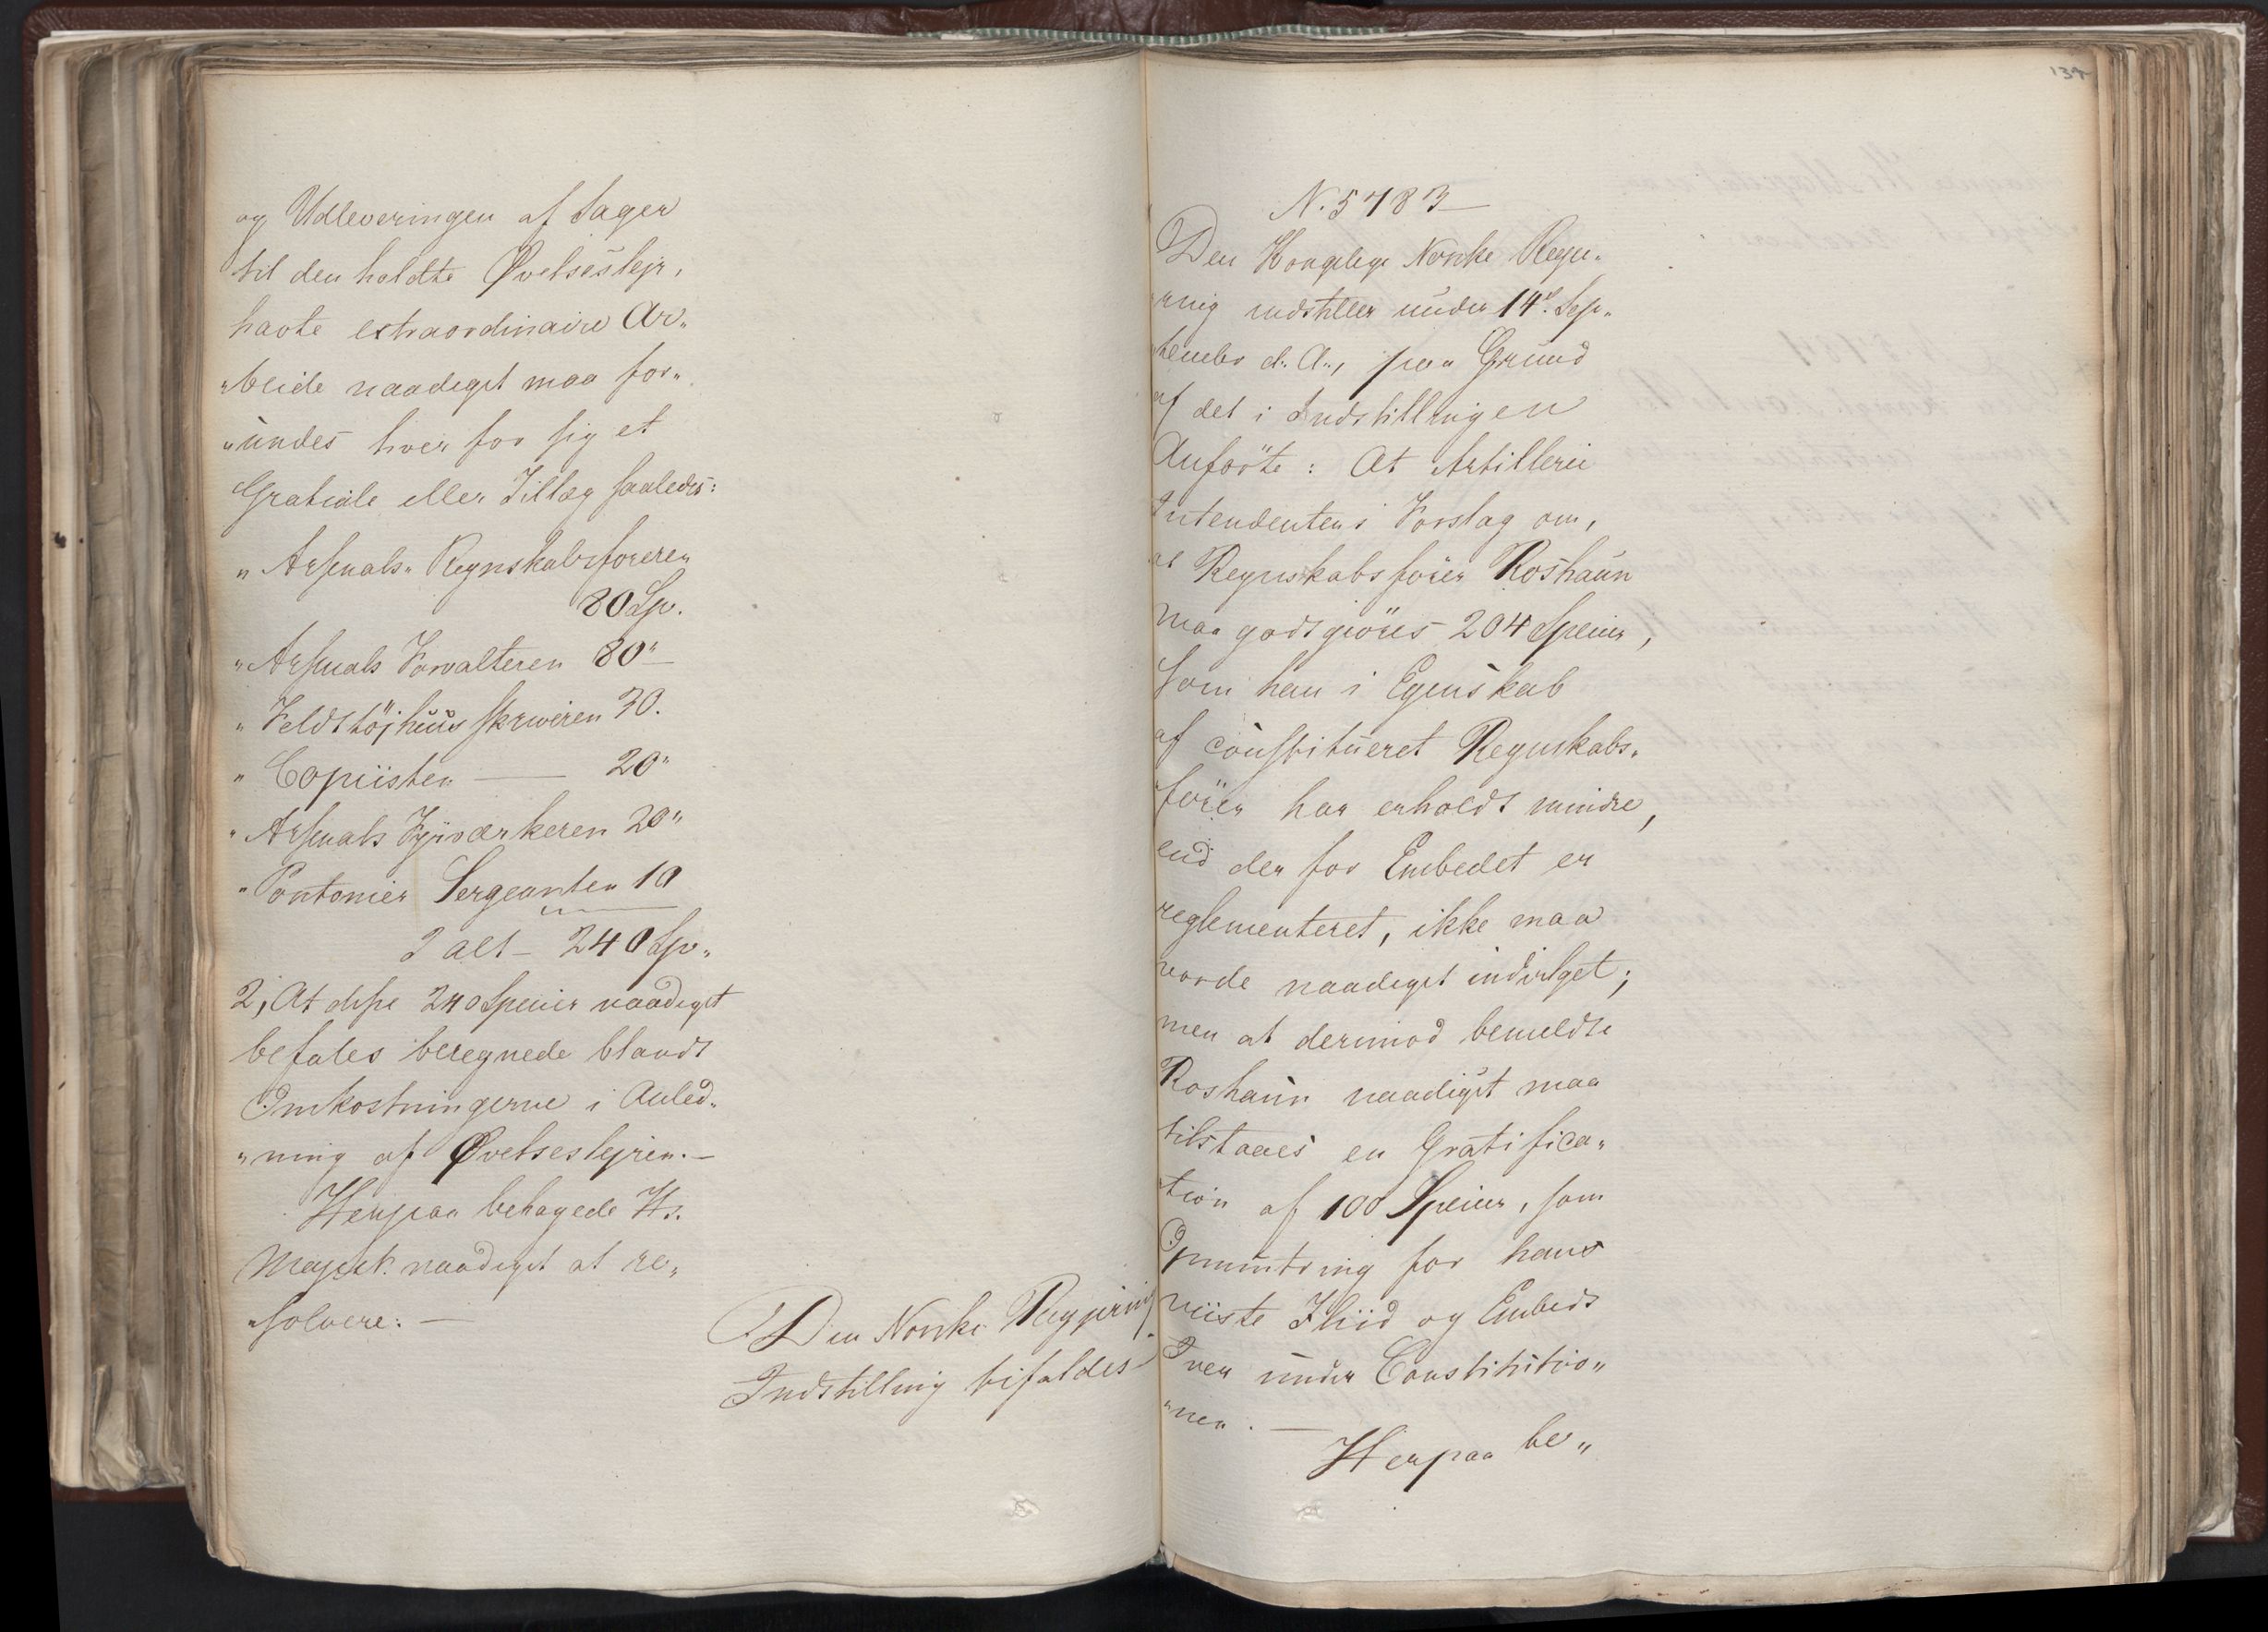 og Udleveringen af Sager
til den holdte Øvelsesleir,
havte extraordinaire Ar„
„beide naadigst maa for„
„undes hver for sig et
Gratiale eller Tillæg saaledes:
„ Arsenals„ Regnskabsføreren
80 Sp.
„ Arsenals Forvalteren 80"
„ Feldttöjhuus skriveren 30.
„ Copiisten — 20"
„ Arsenals Fyrværkeren 20"
„ Pontonier Sergeanten 10
I alt – 240 Sp.
2, At disse 240 Specier naadigst
befales beregnede blandt
Omkostningerne i Anled„
„ning af Øvelsesleiren. —
Herpaa behagede Hs.
Majestt. naadigst at re„
„solvere. —
Den Norske Regjerings
Indstilling bifaldes
134
N. 5783 —
Den Kongelige Norske Regje„
ring indstiller under 14d. Sep„
„tember d. A., paa Grund
af det i Indstillingen
Anførte: At Artillerie
Intendentens Forslag om,
at Regnskabsfører Roshaun
maa godtgiöres 204 Specier,
som han i Egenskab
af constitueret Regnskabs„
förer har erholdt mindre,
end der for Embedet er
reglementeret, ikke maa
vorde naadigst indvilget;
men at derimod bemeldte
Roshaun naadigst maa
tilstaaes en Gratifica„
tion af 100 Specier, som
Opmuntring for hans
viiste Fliid og Embeds
Iver under Constitutio„
„nen. —
Herpaa be„